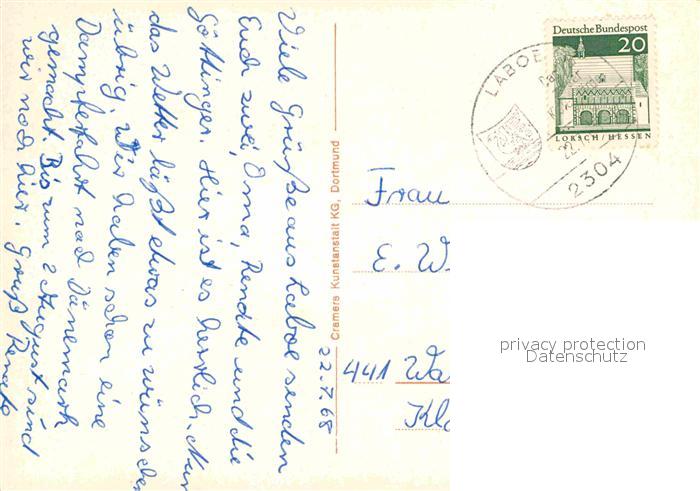 Viele Grüße aus Laboe senden
Euch zwei, Oma, Renate und die
Göttinger. Hier ist es herrlich. Nur
das Wetter läßt etwas zu wünschen
übrig. Wir haben schon eine
Dampferfahrt nach Dänemark
gemacht. Bis zum 2 August sind
wir noch hier. Gruß Renate
22.7.68
Cramers Kunstanstalt KG, Dortmund
Deutsche Bundespost
20
LORSCH/HESSEN
LABOE
22.
2304
Frau
E. W
441 Wa
Klo
privacy protection
Datenschutz